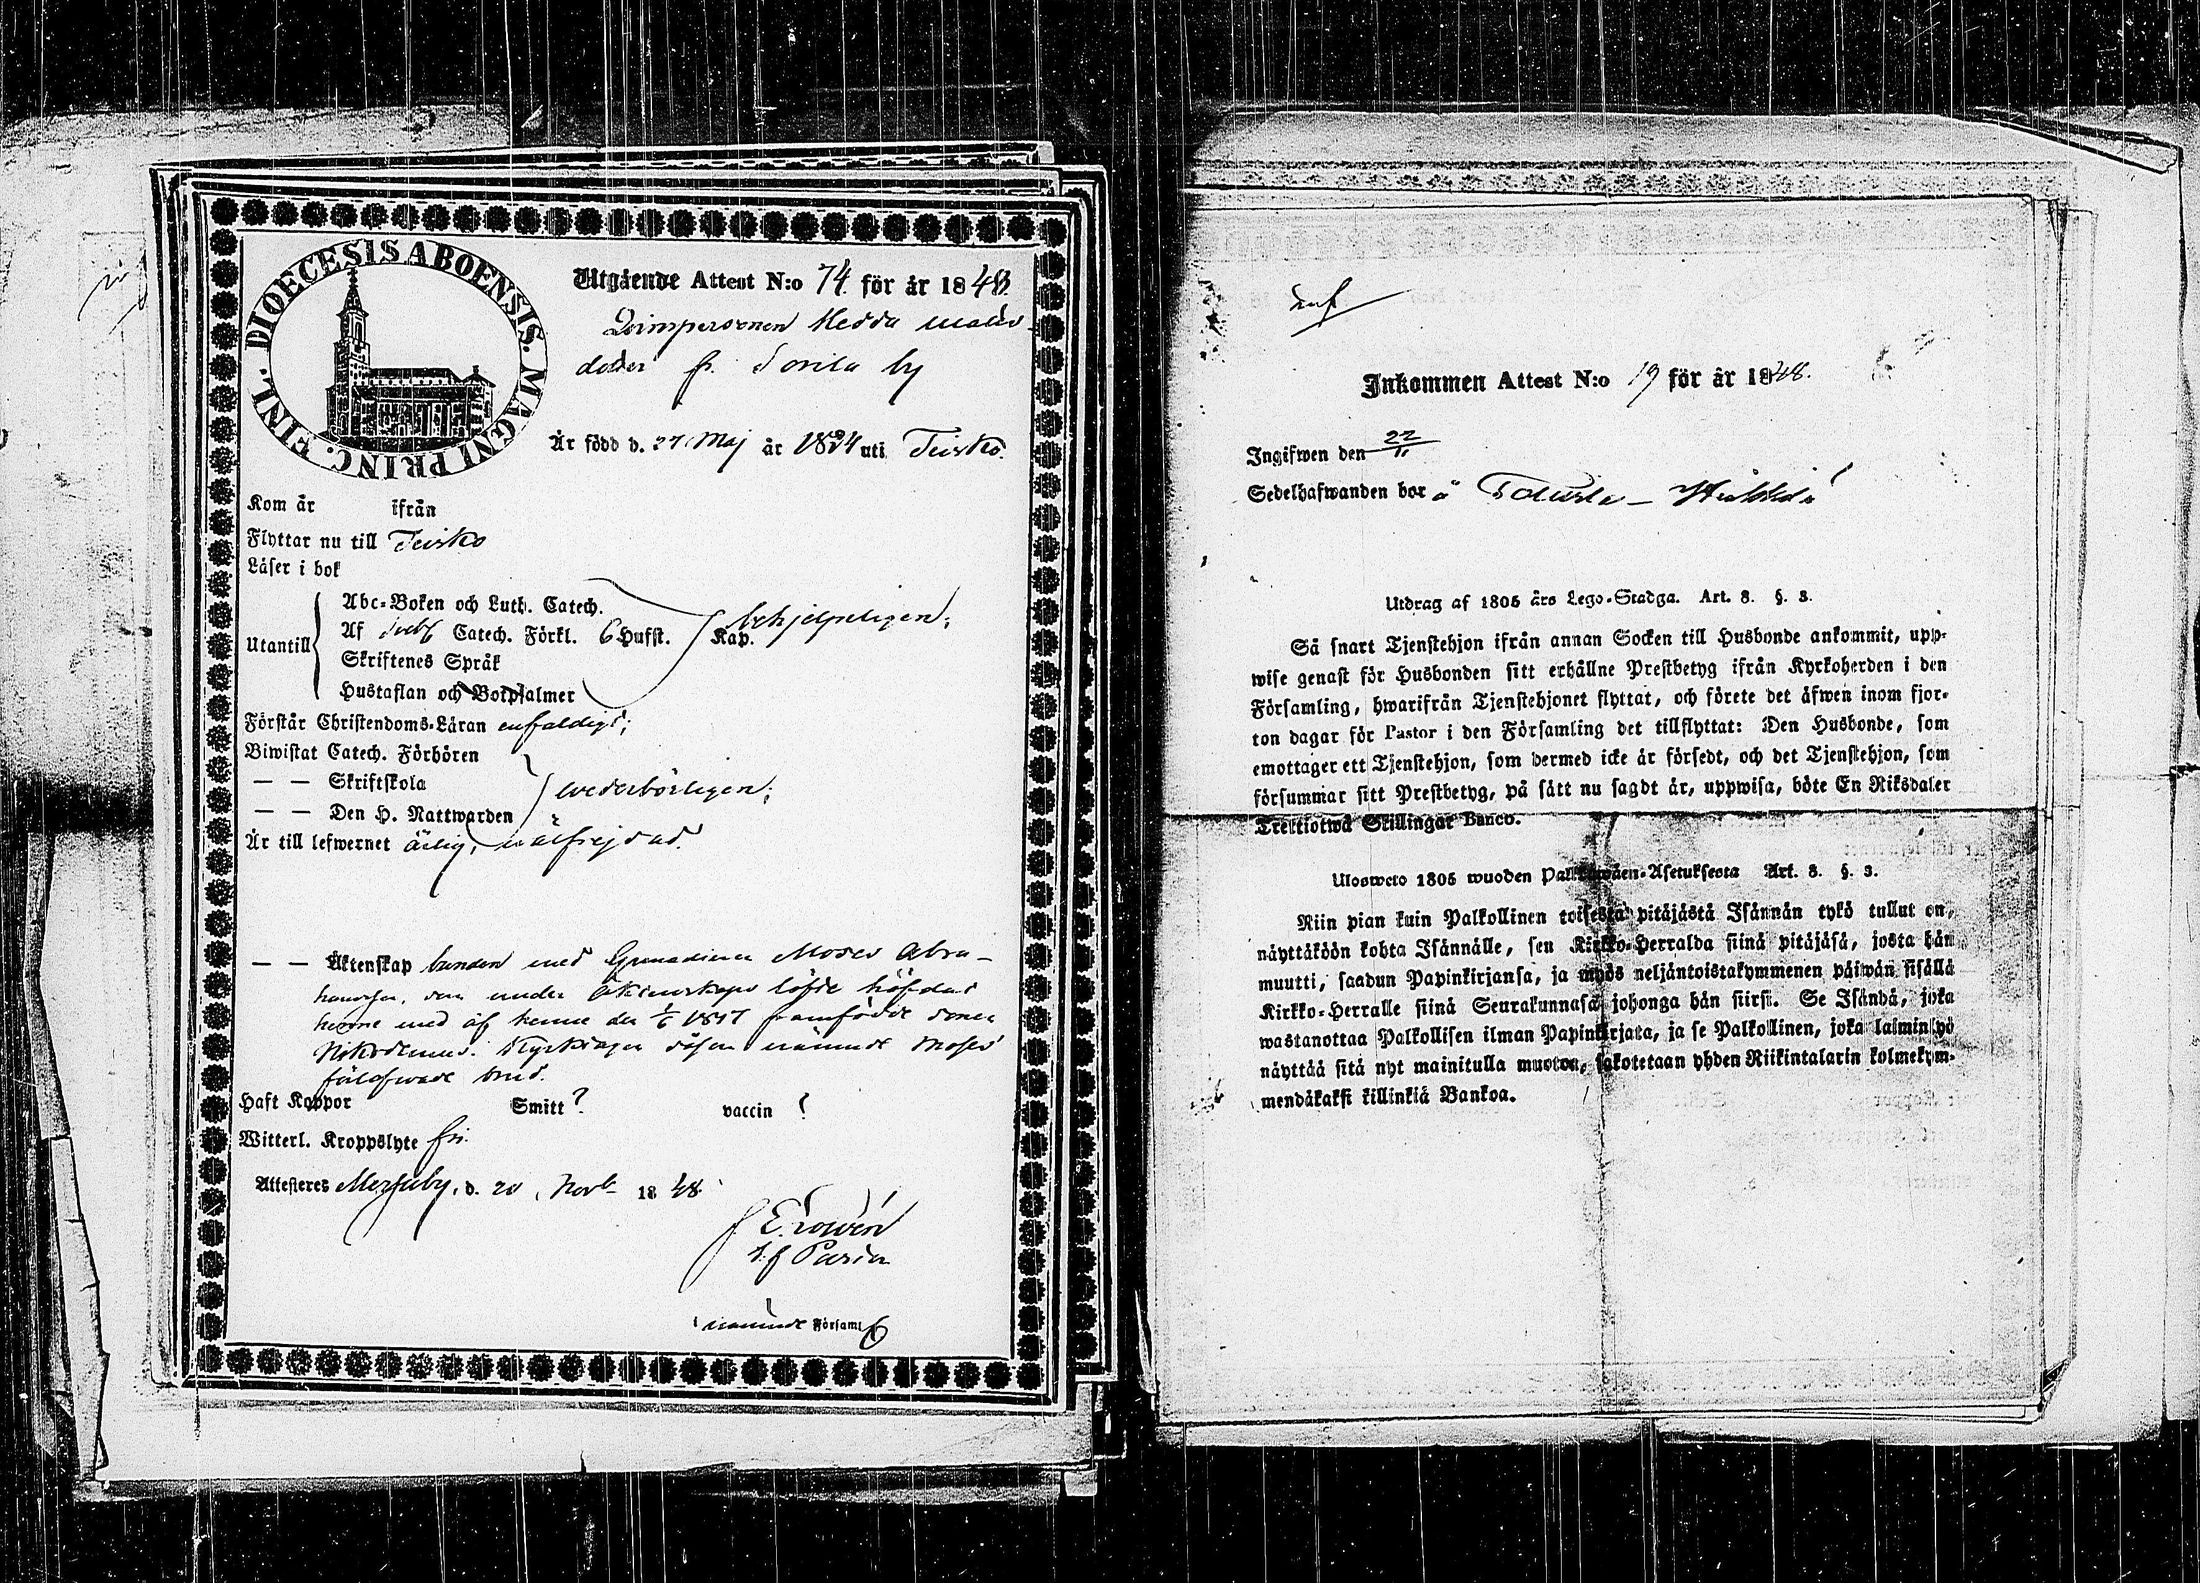 DIOECESIS ABOENSIS. MAGNI PRINC. FINL.
Utgående Attest N:o 74 för år 1848.
Qvinspersonen Hedda
dotter fr. Sorila by
Är född d. 27 Maj år 1824 uti Teisko.
Kom år ifrån
Flyttar nu till Teisko
Läser i bok
Utantill
Abc-Boken och Luth. Catech.
Af Catech. Förkl. 6 Hufst. Kap. behjelpeligen;
Skriftenes Språk
Hustaflan och Botpsalmer
Förstår Christendoms-Läran enfaldigt;
Biwistat Catech. Förhören
— — Skriftskola
— — Den H. Nattwarden
wederbörligen;
Är till lefwernet ärlig, wälfrejdad.
— — Äktenskap bunden med Grenadieren Moses Abra-
hamsson, som under äktenskaps löfte häfdat
henne med af henne den 1847 framfödde sonen
Nikodemus. Kyrktagen såsom nämnde Moses
fästade brud.
Haft Koppor Smitt? vaccin?
Witterl. Kroppslyte fri.
Attesteres Messuby, d. 20 Novb. 1848.
E. Lowén
nämnde Församl
Inkommen Attest N:o 19 för år 1848.
Ingifwen den 22/11
Sedelhafwanden bor å
Utdrag af 1805 års Lego-Stadga. Art. 8. §. 3.
Så snart Tjenstehjon ifrån annan Socken till Husbonde ankommit, upp-
wise genast för Husbonden sitt erhållne Prestbetyg ifrån Kyrkoherden i den
Församling, hwarifrån Tjenstehjonet flyttat, och förete det äfwen inom fjor-
ton dagar för Pastor i den Församling det tillflyttat: Den Husbonde, som
emottager ett Tjenstehjon, som dermed icke är försedt, och det Tjenstehjon, som
försummar sitt Prestbetyg, på sätt nu sagdt är, uppwisa, böte En Riksdaler
Trettiotwå Skillingar Banco.
Uloswweto 1805 wuoden Palkkawäen-Asetuksesta Art. 8. §. 3.
Niin pian kuin Palkollinen toisesta pitäjästä Isännän tykö tullut on,
näyttäköön kohta Isännälle, sen Kirkko-Herralda siinä pitäjäsä, josta hän
muutti, saadun Papinkirjansa, ja myös neljäntoistakymmenen päiwän sisällä
Kirkko-Herralle siinä Seurakunnasa johonga hän siirsi. Se Isändä, joka
wastanottaa Palkollisen ilman Papinkirjata, ja se Palkollinen, joka laiminlyö
näyttää sitä nyt mainitulla muoton, sakotetaan yhden Riikintalarin kolmekym-
mendäkaksi killinkiä Bankoa.